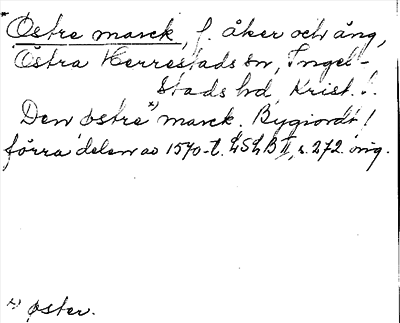 *Østre marck, f. åker och äng,
Östra Herrestads sn, Ingel-
stads hd, Krist. l.
Den østre *) marck. Bygiordt!
förra delen av 1570-t. LSLB II, s. 272. orig.
*) øster.